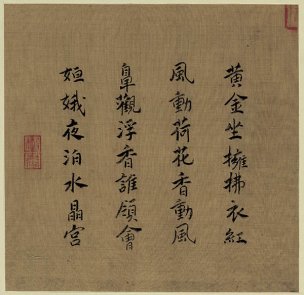 黃金坐擁拂衣紅
風動荷花香動風
鼻觀浮香誰領會
姮娥夜泊水晶宮